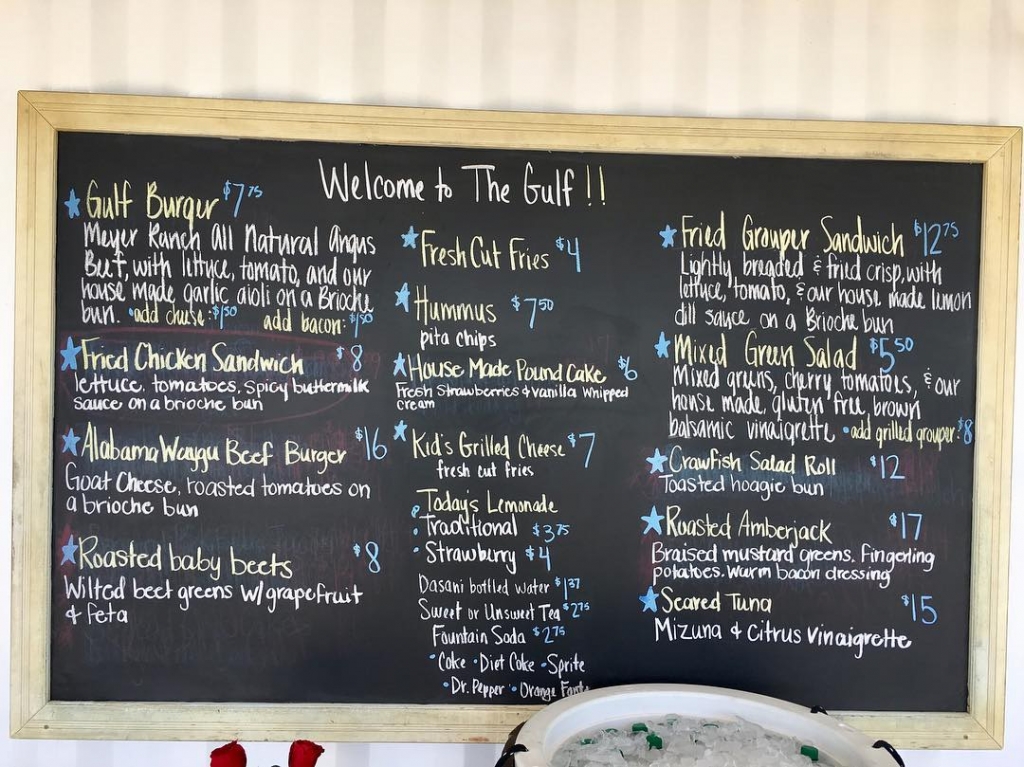 Welcome to The Gulf!!
Gulf Burger $7 75
Meyer Ranch All Natural Angus
Beef, with lettuce, tomato, and our
house made garlic aioli on a Brioche
bun. •add cheese: $1 50 add bacon: $1 50
Fried Chicken Sandwich $8
lettuce, tomatoes, spicy buttermilk
sauce on a brioche bun
Alabama Waygu Beef Burger $16
Goat Cheese, roasted tomatoes on
a brioche bun
Roasted baby beets $8
Wilted beet greens w/ grapefruit
& feta
Fresh Cut Fries $4
Hummus $7 50
pita chips
House Made Pound Cake $6
Fresh Strawberries & Vanilla Whipped
cream
Kid's Grilled Cheese $7
fresh cut fries
Today's Lemonade
• Traditional $3.75
• Strawberry $4
Dasani bottled water $1 37
Sweet or Unsweet Tea $2 75
Fountain Soda $2 75
• Coke • Diet Coke • Sprite
• Dr. Pepper • Orange Fanta
Fried Grouper Sandwich $12 75
Lightly breaded & fried crisp, with
lettuce, tomato, & our house made lemon
dill sauce on a Brioche bun
Mixed Green Salad $5 50
Mixed greens, cherry tomatoes, & our
house made, gluten free, brown
balsamic vinaigrette •add grilled grouper: $8
Crawfish Salad Roll $12
Toasted hoagie bun
Roasted Amberjack $17
Braised mustard greens. Fingerling
potatoes. Warm bacon dressing
Seared Tuna $15
Mizuna & Citrus Vinaigrette